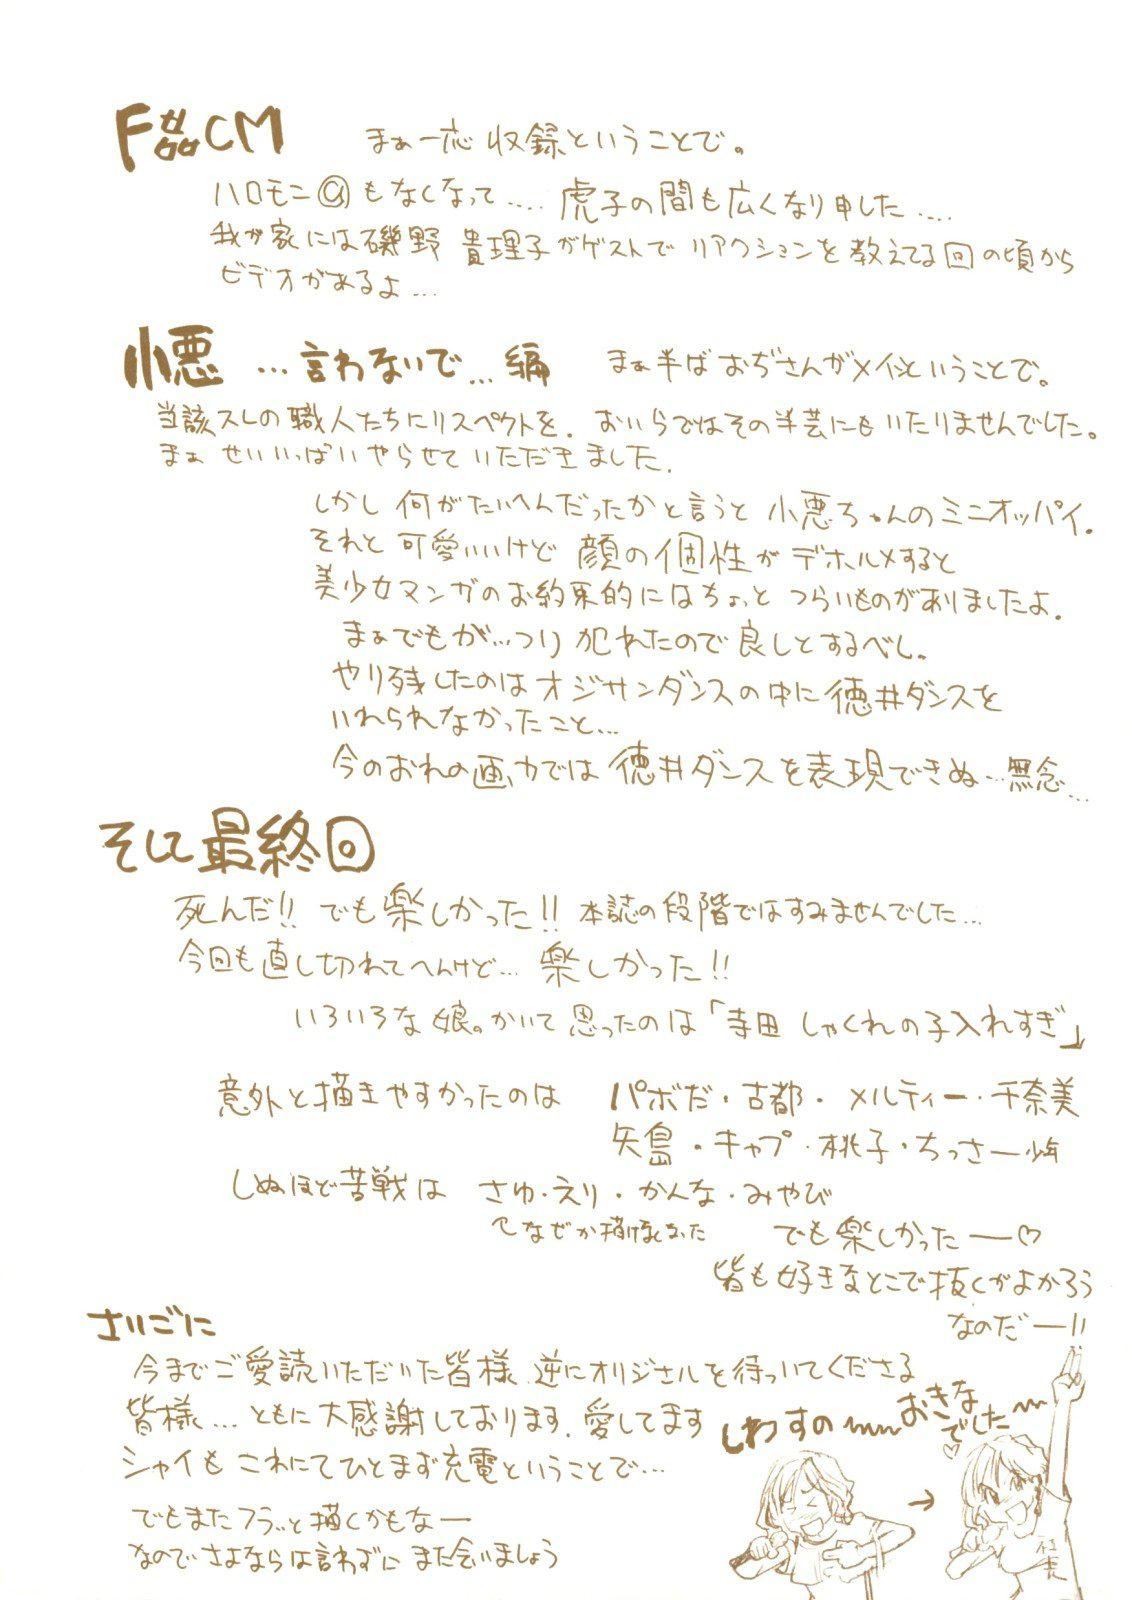 F㚣CM まぁ一応 収録ということで。
ハロモニ@もなくなって.... 虎子の間も広くなり申した....
我が家には磯野 貴理子がゲストで リアクションを教えてる回の頃から
ビデオがあるよ...
小悪 ...言わないで...編 まぁ半ばおぢさんがメインということで。
当該スレの職人たちにリスペクトを. おいらではその半芸にもいたりませんでした。
まぁ せいいっぱいやらせていただきました.
しかし 何がたいへんだったかと言うと 小悪ちゃんのミニオッパイ.
それと 可愛いいけど 顔の個性が デホルメすると
美少女マンガのお約束的にはちょっと つらいものがありましたよ.
まぁでもが...つり 犯れたので良しとするべし.
やり残したのはオジサンダンスの中に徳井ダンスを
いれられなかったこと...
今のおれの画力では 徳井ダンスを表現できぬ...無念...
そして最終回
死んだ!! でも楽しかった!! 本誌の段階ではすみませんでした...
今回も直し切れてへんけど... 楽しかった!!
いろいろな娘。かいて思ったのは「寺田 しゃくれの子入れすぎ」
意外と描きやすかったのは パボだ・古都・メルティー・千奈美
矢島・キャプ・桃子・ちっさー少年
しぬほど苦戦は さゆ・えり・かんな・みやび
なぜか描け なかった でも楽しかったー♡
皆も好きなとこで抜くがよかろう
なのだー!!
さいごに
今までご愛読いただいた皆様 逆にオリジナルを待っいてくださる
皆様... ともに大感謝しております. 愛してます
シャイも これにてひとまず充電ということで...
でもまたフラッと描くかもなー
なのでさよならは言わずに また会いましょう
しわすの〜 おきな
でした〜